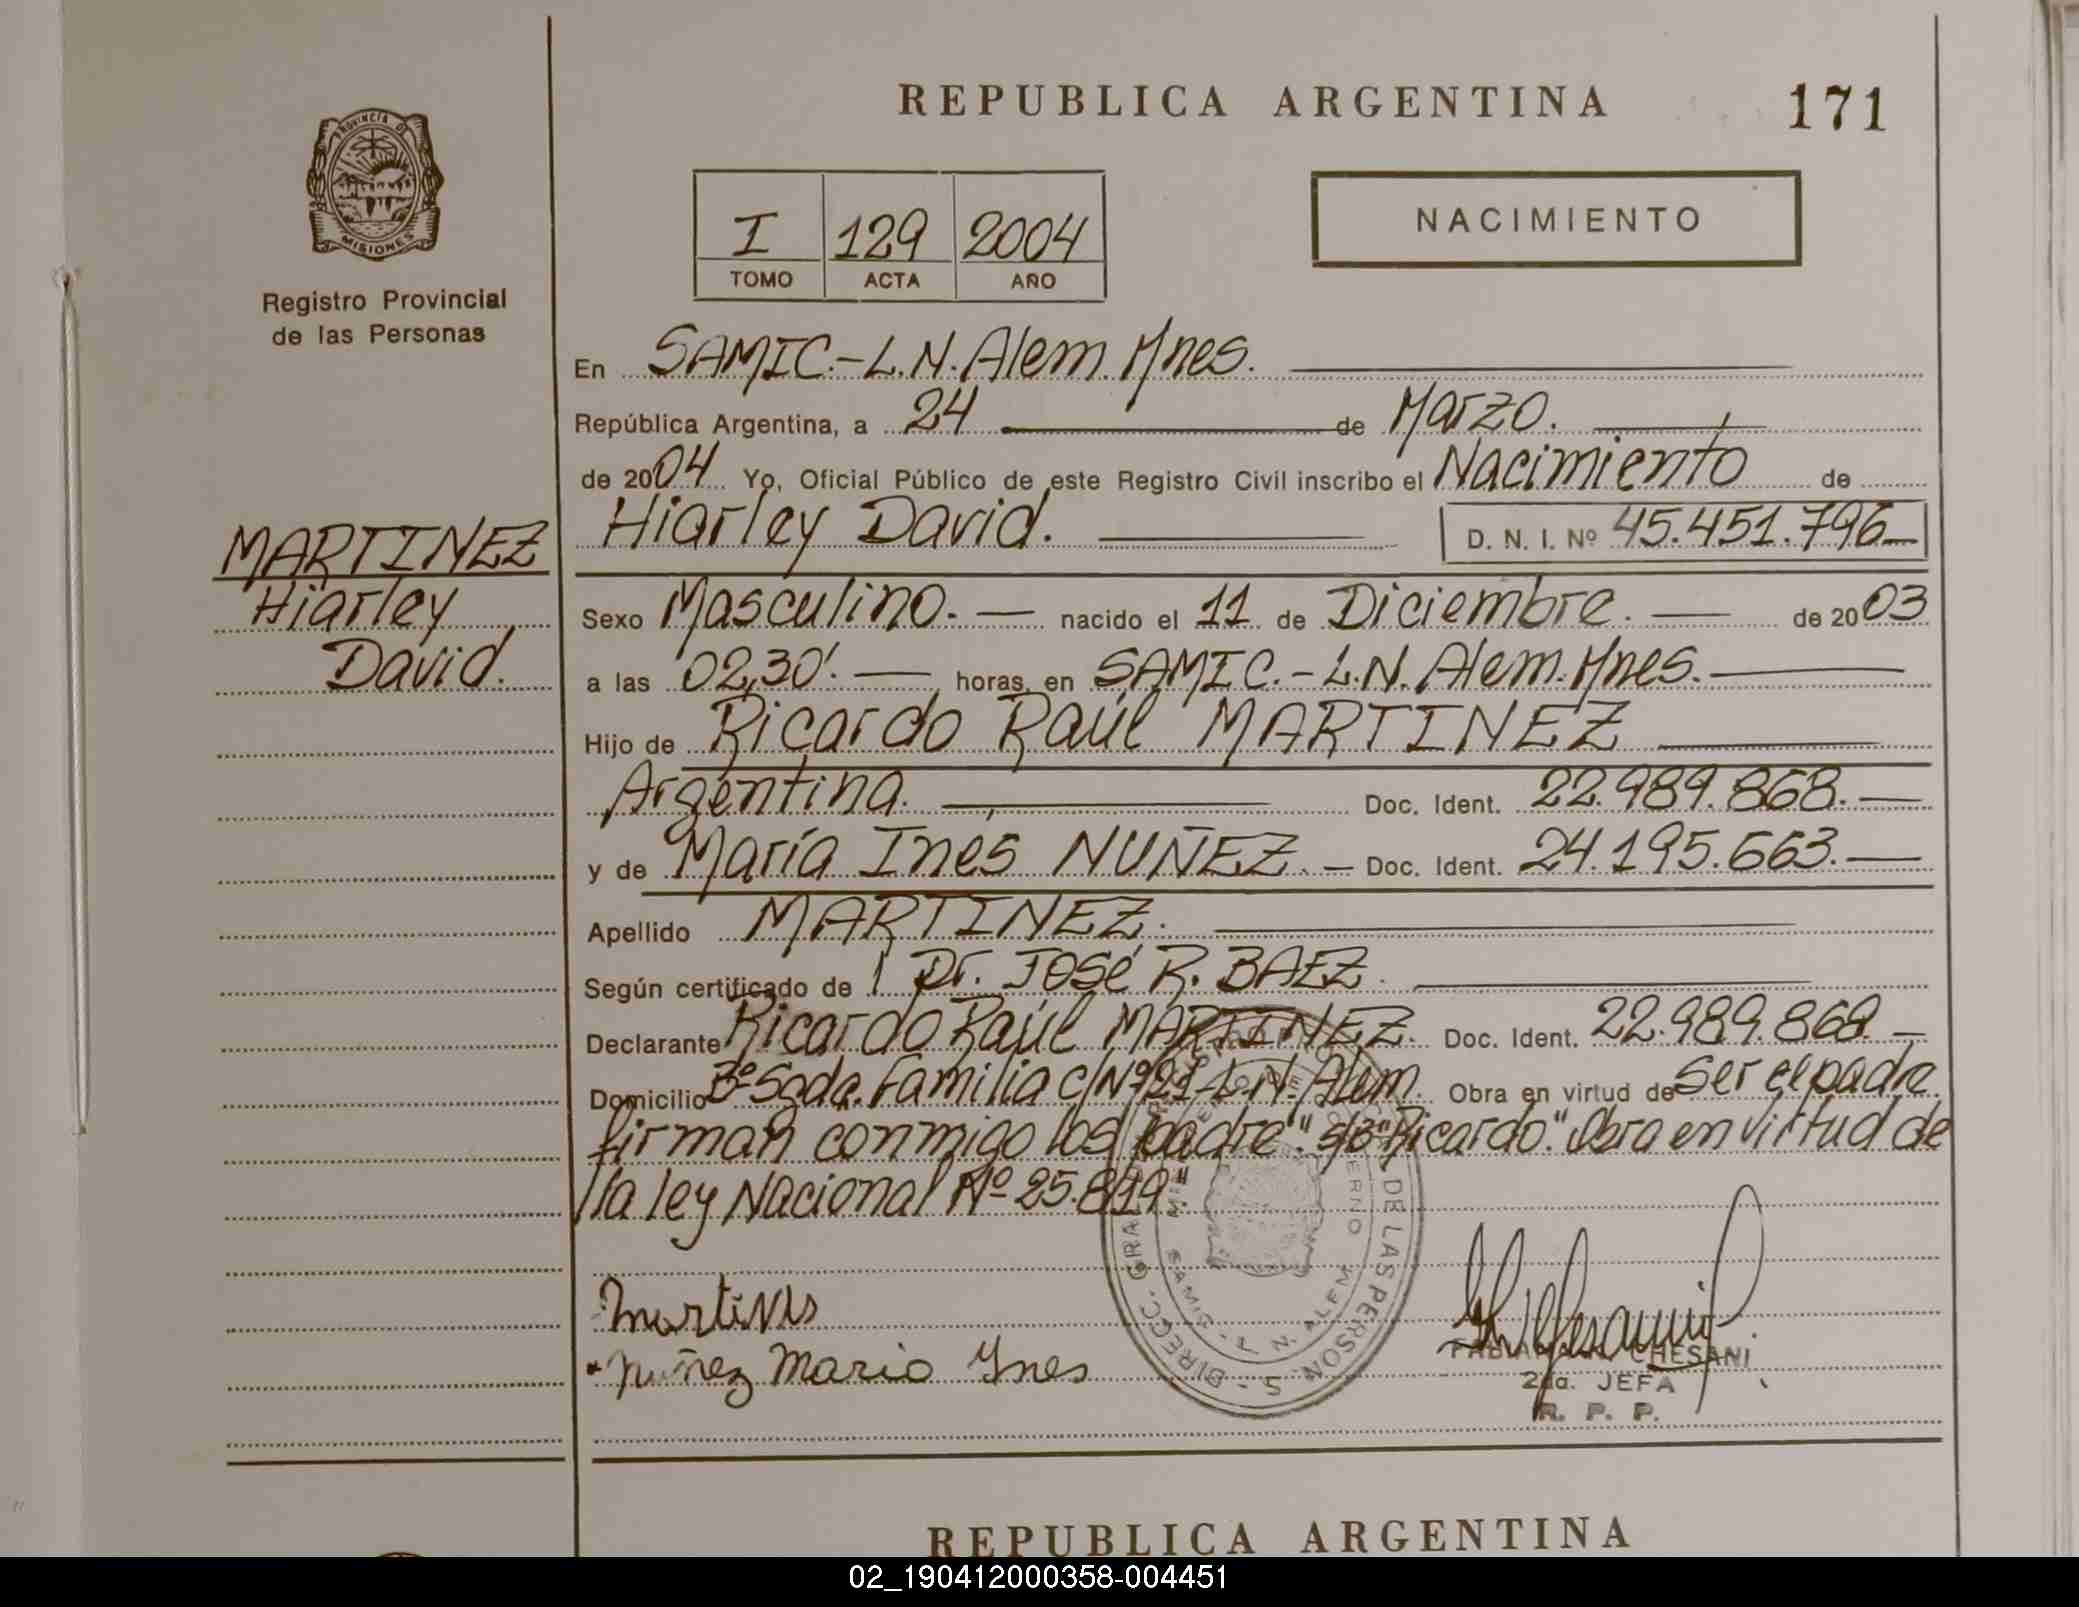 REPUBLICA ARGENTINA
171
PROVINCIA DE
MISIONES
Registro Provincial
de las Personas
I 129 2004
TOMO ACTA AÑO
NACIMIENTO
En SAMIC.-L.N.Alem.Mnes.
República Argentina, a 24 de Marzo.
de 2004 Yo, Oficial Público de este Registro Civil inscribo el Nacimiento de
Hiarley David. D. N. I. Nº 45.451.796
MARTINEZ
Hiarley
David.
Sexo Masculino.- nacido el 11 de Diciembre. de 2003
a las 02,30'. horas, en SAMIC.-L.N.Alem.Mnes.
Hijo de Ricardo Raúl MARTINEZ
Argentina. Doc. Ident. 22.989.868.
y de María Inés NUÑEZ. - Doc. Ident. 24.195.663.
Apellido MARTINEZ.
Según certificado de Dr. José R. BAEZ.
Declarante Ricardo Raúl MARTINEZ. Doc. Ident. 22.989.868.
Domicilio Bº Sgda. Familia c/Nº21-L.N.Alem. Obra en virtud de Ser el padre
firman conmigo los padre". s/b "Ricardo." Obra en virtud de
la ley Nacional Nº 25.819"
DE LAS PERSON.
DIRECC. GRA
SAMIC - L. N. ALEM
Nuñez Maria Ynes
CHESANI
2da. JEFA
R. P. P.
REPUBLICA ARGENTINA
02_190412000358-004451